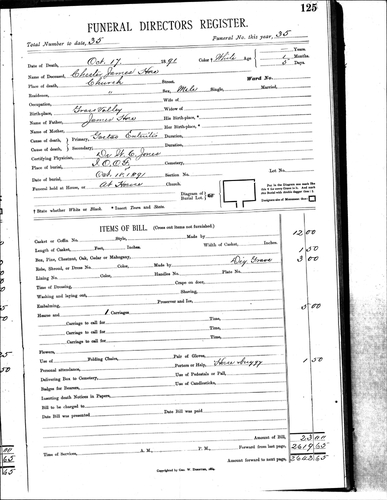 125
FUNERAL DIRECTORS REGISTER.
Total Number to date, 35 Funeral No. this year, 35
Date of Death, Oct. 17, 1891 Color * White Age — Years.
Name of Deceased, Chester James Hore 1 Months.
Place of death, Church Street. 5 Days
Residence, " Sex, Male Single, Married, Ward No.
Occupation, Wife of
Birthplace, Grass Valley Widow of
Name of Father, James Hore His Birth-place, *
Name of Mother, Her Birth-place, *
Cause of death, Primary, Gastro Enteritis Duration,
Cause of death, Secondary, Duration,
Certifying Physician, Dr. W. C. Jones
Place of burial, I.O.O.F. Cemetery,
Date of burial, Oct. 1891 Section No.
Funeral held at House, or At Home Church.
Diagram of Burial Lot.
* State whether White or Black. * Insert Town and State.
ITEMS OF BILL. (Cross out items not furnished.)
Casket or Coffin No. Style, 12 00
Length of Casket, Feet, Inches. Width of Casket, Inches.
Box, Pine, Chestnut, Oak, Cedar or Mahogany, 1 50
Robe, Shroud, or Dress No. Color, Made by Dig Grave 3 00
Lining No. Color, Handles No. Plate No.
Time of Dressing, Crape on door,
Washing and laying out, Shaving,
Embalming, Preserver and Ice,
Hearse and 1 Carriages 5 00
Carriage to call for Time,
Carriage to call for Time,
Carriage to call for Time,
Carriage to call for Time,
Flowers,
Use of Folding Chairs, Pair of Gloves,
Personal attendance, Porters or Help, Horse buggy 1 50
Delivering Box to Cemetery, Use of Pedestals or Pall,
Badges for Bearers, Use of Candlesticks,
Inserting death Notices in Papers,
Bill to be charged to
Date Bill was presented Date Bill was paid
Amount of Bill, 23 00
Forward from last page, 2619 65
Time of Services, A. M., P. M., Amount forward to next page, 2642 65
Copyrighted by Geo. W.